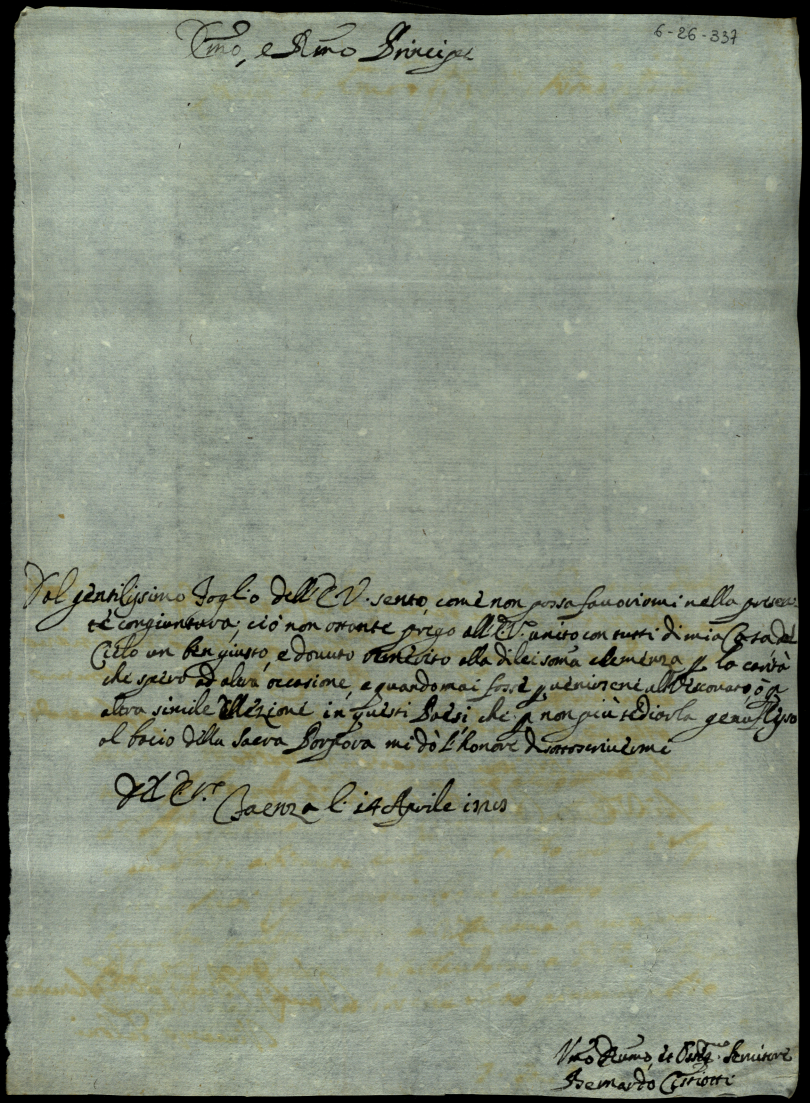 6-26-337
Emo, e Rmo Principe
Dal gentilissimo foglio dell'E.V. sento, come non possa favorirmi nella presen
te congiuntura; ciò non ostante prego all'E.V. unito con tutti di mia Casa dal
Cielo un ben giusto, e dovuto alla di lei somà clemenza p la carità
che spero ad altra occasione, e quando mai fosse p venirsene all Vescovato, ò a
altra simile Elezione in questi Paesi che p non più tediarla genuflesso
al bacio della Sacra Porpora mi dò l'honore di sottoscrivermi
D V. E.
Faenza li 14 Aprile
Vmo et Servitore
Bernardo